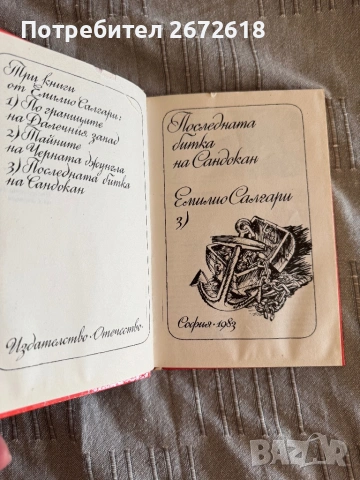 Потребител 2672618
Три книги
от Емилио Салгари:
1) По границите
на Далечния запад
2) Тайните
на Черната джунгла
3) Последната битка
на Сандокан
Издателство · Отечество ·
Последната
битка
на Сандокан
Емилио Салгари
3)
София · 1983
BAZAR